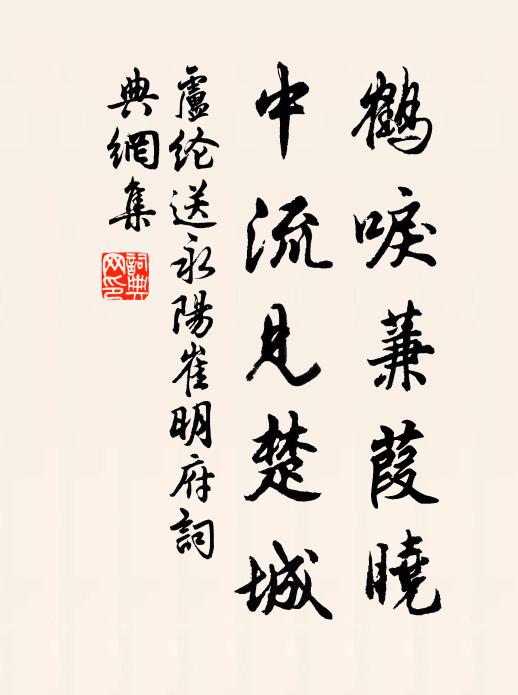 鶴唳蒹葭曉
中流見楚城
盧纶送永陽崔明府詞
典網集
詞典
网印